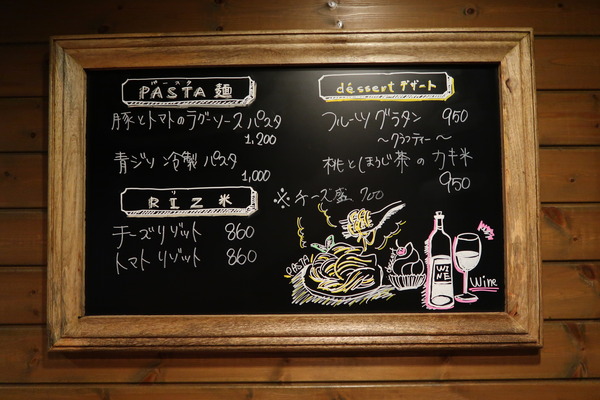 パースタ
PASTA 麺
豚とトマトのラグーソース パスタ
1,200
青ジソ 冷製 パスタ
1,000
RIZ 米
チーズリゾット 860
トマトリゾット 860
déssert デザート
フルーツグラタン 950
〜グラフティー〜
桃とほうじ茶の カキ氷
950
※チーズ盛 700
PASTA
WINE
Wine